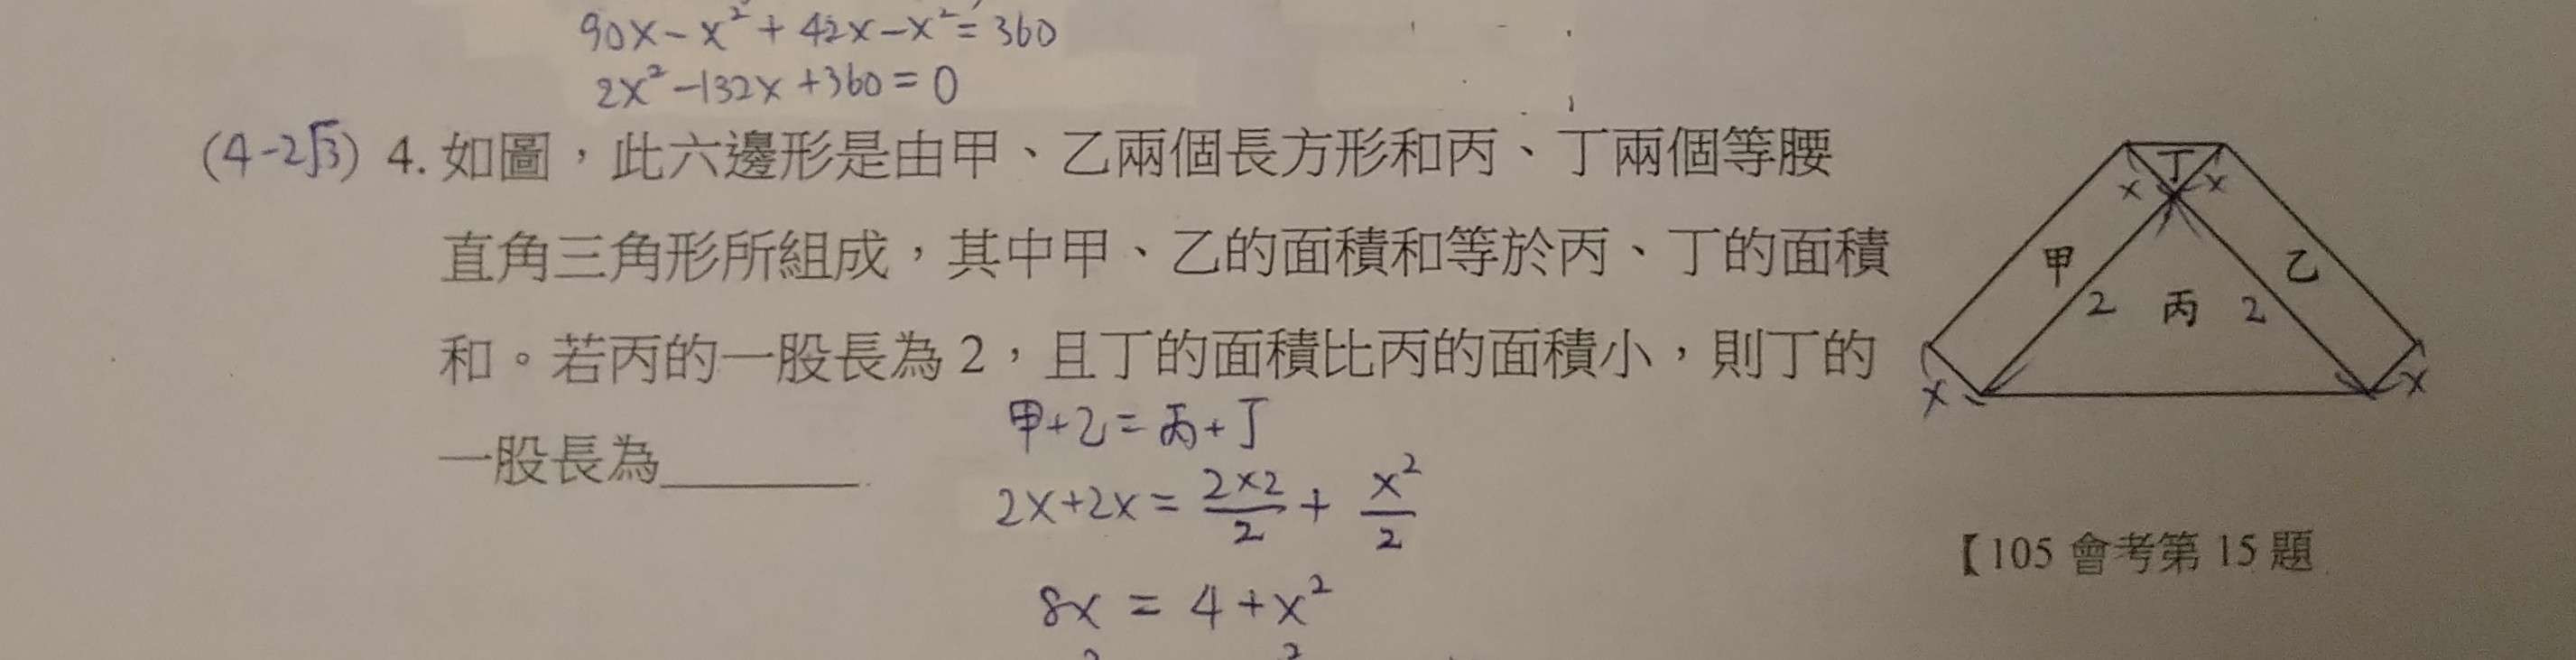 90x-x²+42x-x²=360
2x²-132x+360=0
(4-2√3) 4. 如圖，此六邊形是由甲、乙兩個長方形和丙、丁兩個等腰
直角三角形所組成，其中甲、乙的面積和等於丙、丁的面積
和。若丙的一股長為 2，且丁的面積比丙的面積小，則丁的
一股長為________.
甲+乙=丙+丁
2x+2x=\frac{2×2}{2}+\frac{x²}{2}
8x=4+x²
丁
x x
甲 乙
2 丙 2
x x
【105 會考第 15 題